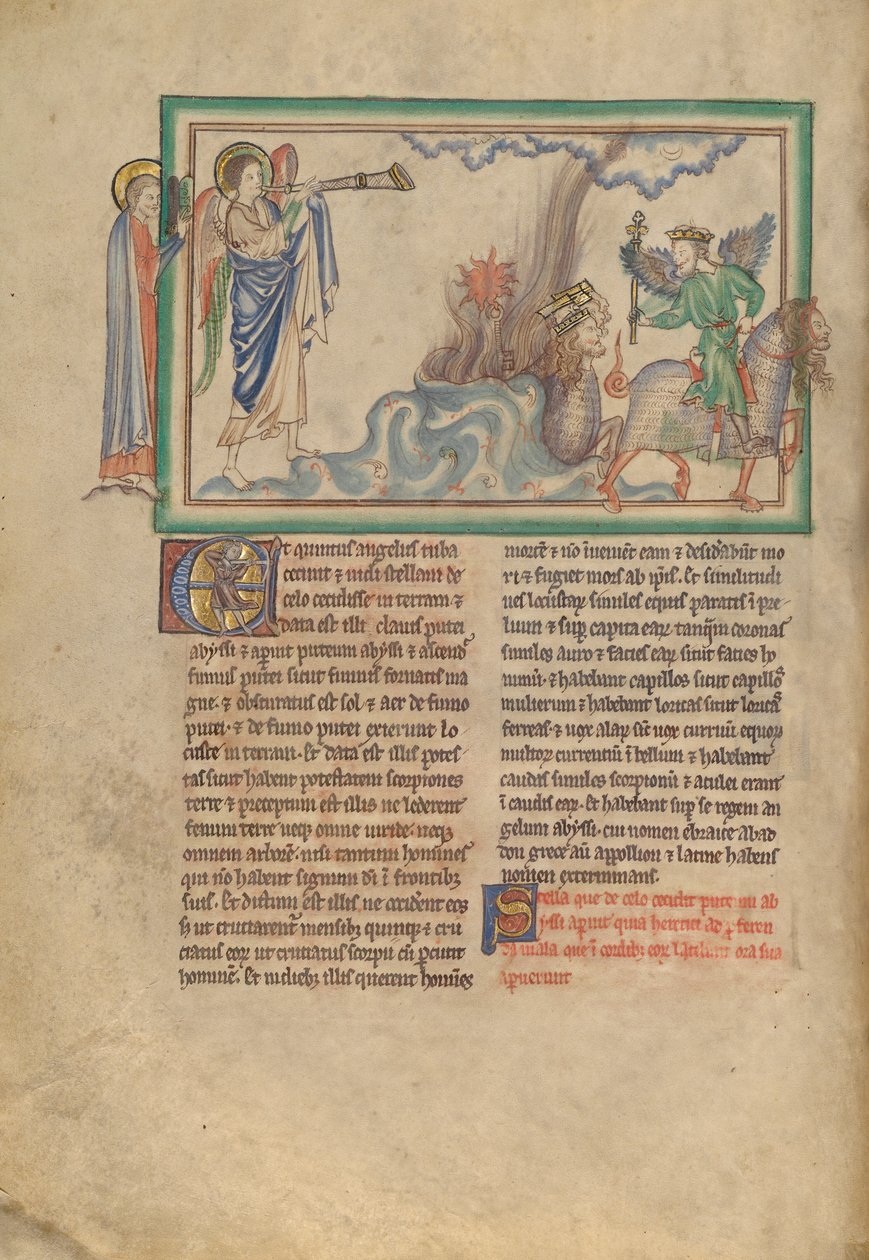 Et quintus angelus tuba
cecinit ⁊ uidi stellam de
celo cecidisse in terram ⁊
data est illi clauis putei
abyssi ⁊ aꝑuit puteum abyssi ⁊ ascend̾
fumus putei sicut fumus fornacis ma
gne· ⁊ obscuratus est sol ⁊ aer de fumo
putei· ⁊ de fumo putei exierunt lo-
custe in terram· Et data est illis potes-
tas sicut habent potestatem scorpiones
terre ⁊ preceptum est illis ne lederent
fenum terre neqꝫ omne uiride· neqꝫ
omnem arborē· nisi tantum homines
qui nō habent signum dī ī frontibꝫ
suis· Et dictum est illis ne occiderent eos
sꝫ ut cruciarent᷑ mensibꝫ quinqꝫ ⁊ cru
ciatus eoꝝ ut cruciatus scorpii cū ꝑcutit
hominē· Et in diebꝫ illis querent hoīes
mortē ⁊ nō īuenient eam ⁊ desid̾abūt mo
ri ⁊ fugiet mors ab ip̄is· Et similitudi
nes locustaꝝ similes equis paratis ī pre-
lium ⁊ suꝑ capita eaꝝ tanqͣm coronas
similes auro ⁊ facies eaꝝ sicut facies ho
minū· ⁊ habebant capillos sicut capillos
mulierum ⁊ habebant loricas sicut loricas
ferreas· ⁊ uox alaꝝ sic̄ uox curruū equoꝝ
multoꝝ currentiū ī bellum ⁊ habebant
caudas similes scorpionū ⁊ aculei erant
ī caudis eaꝝ· Et habebant suꝑ se regem an
gelum abyssi· cui nomen ebraice abad
don grece aū appollion ⁊ latine habens
nomen exterminans·
Stella que de celo cecidit
yssi aꝑuit quia heretici ad ꝓferen
da mala que ī cordibꝫ eoꝝ latebant ora sua
aꝑuerunt